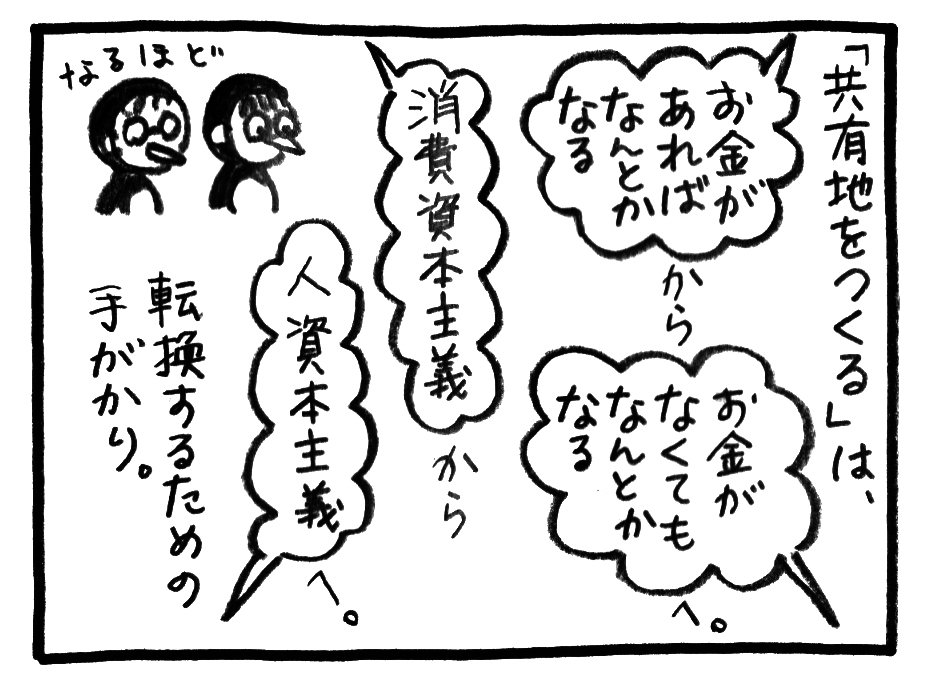 「共有地をつくる」は、
お金が
あれば
なんとか
なる
から
お金が
なくても
なんとか
なる
へ。
消費資本主義
から
人資本主義
へ。
転換するための
手がかり。
なるほど